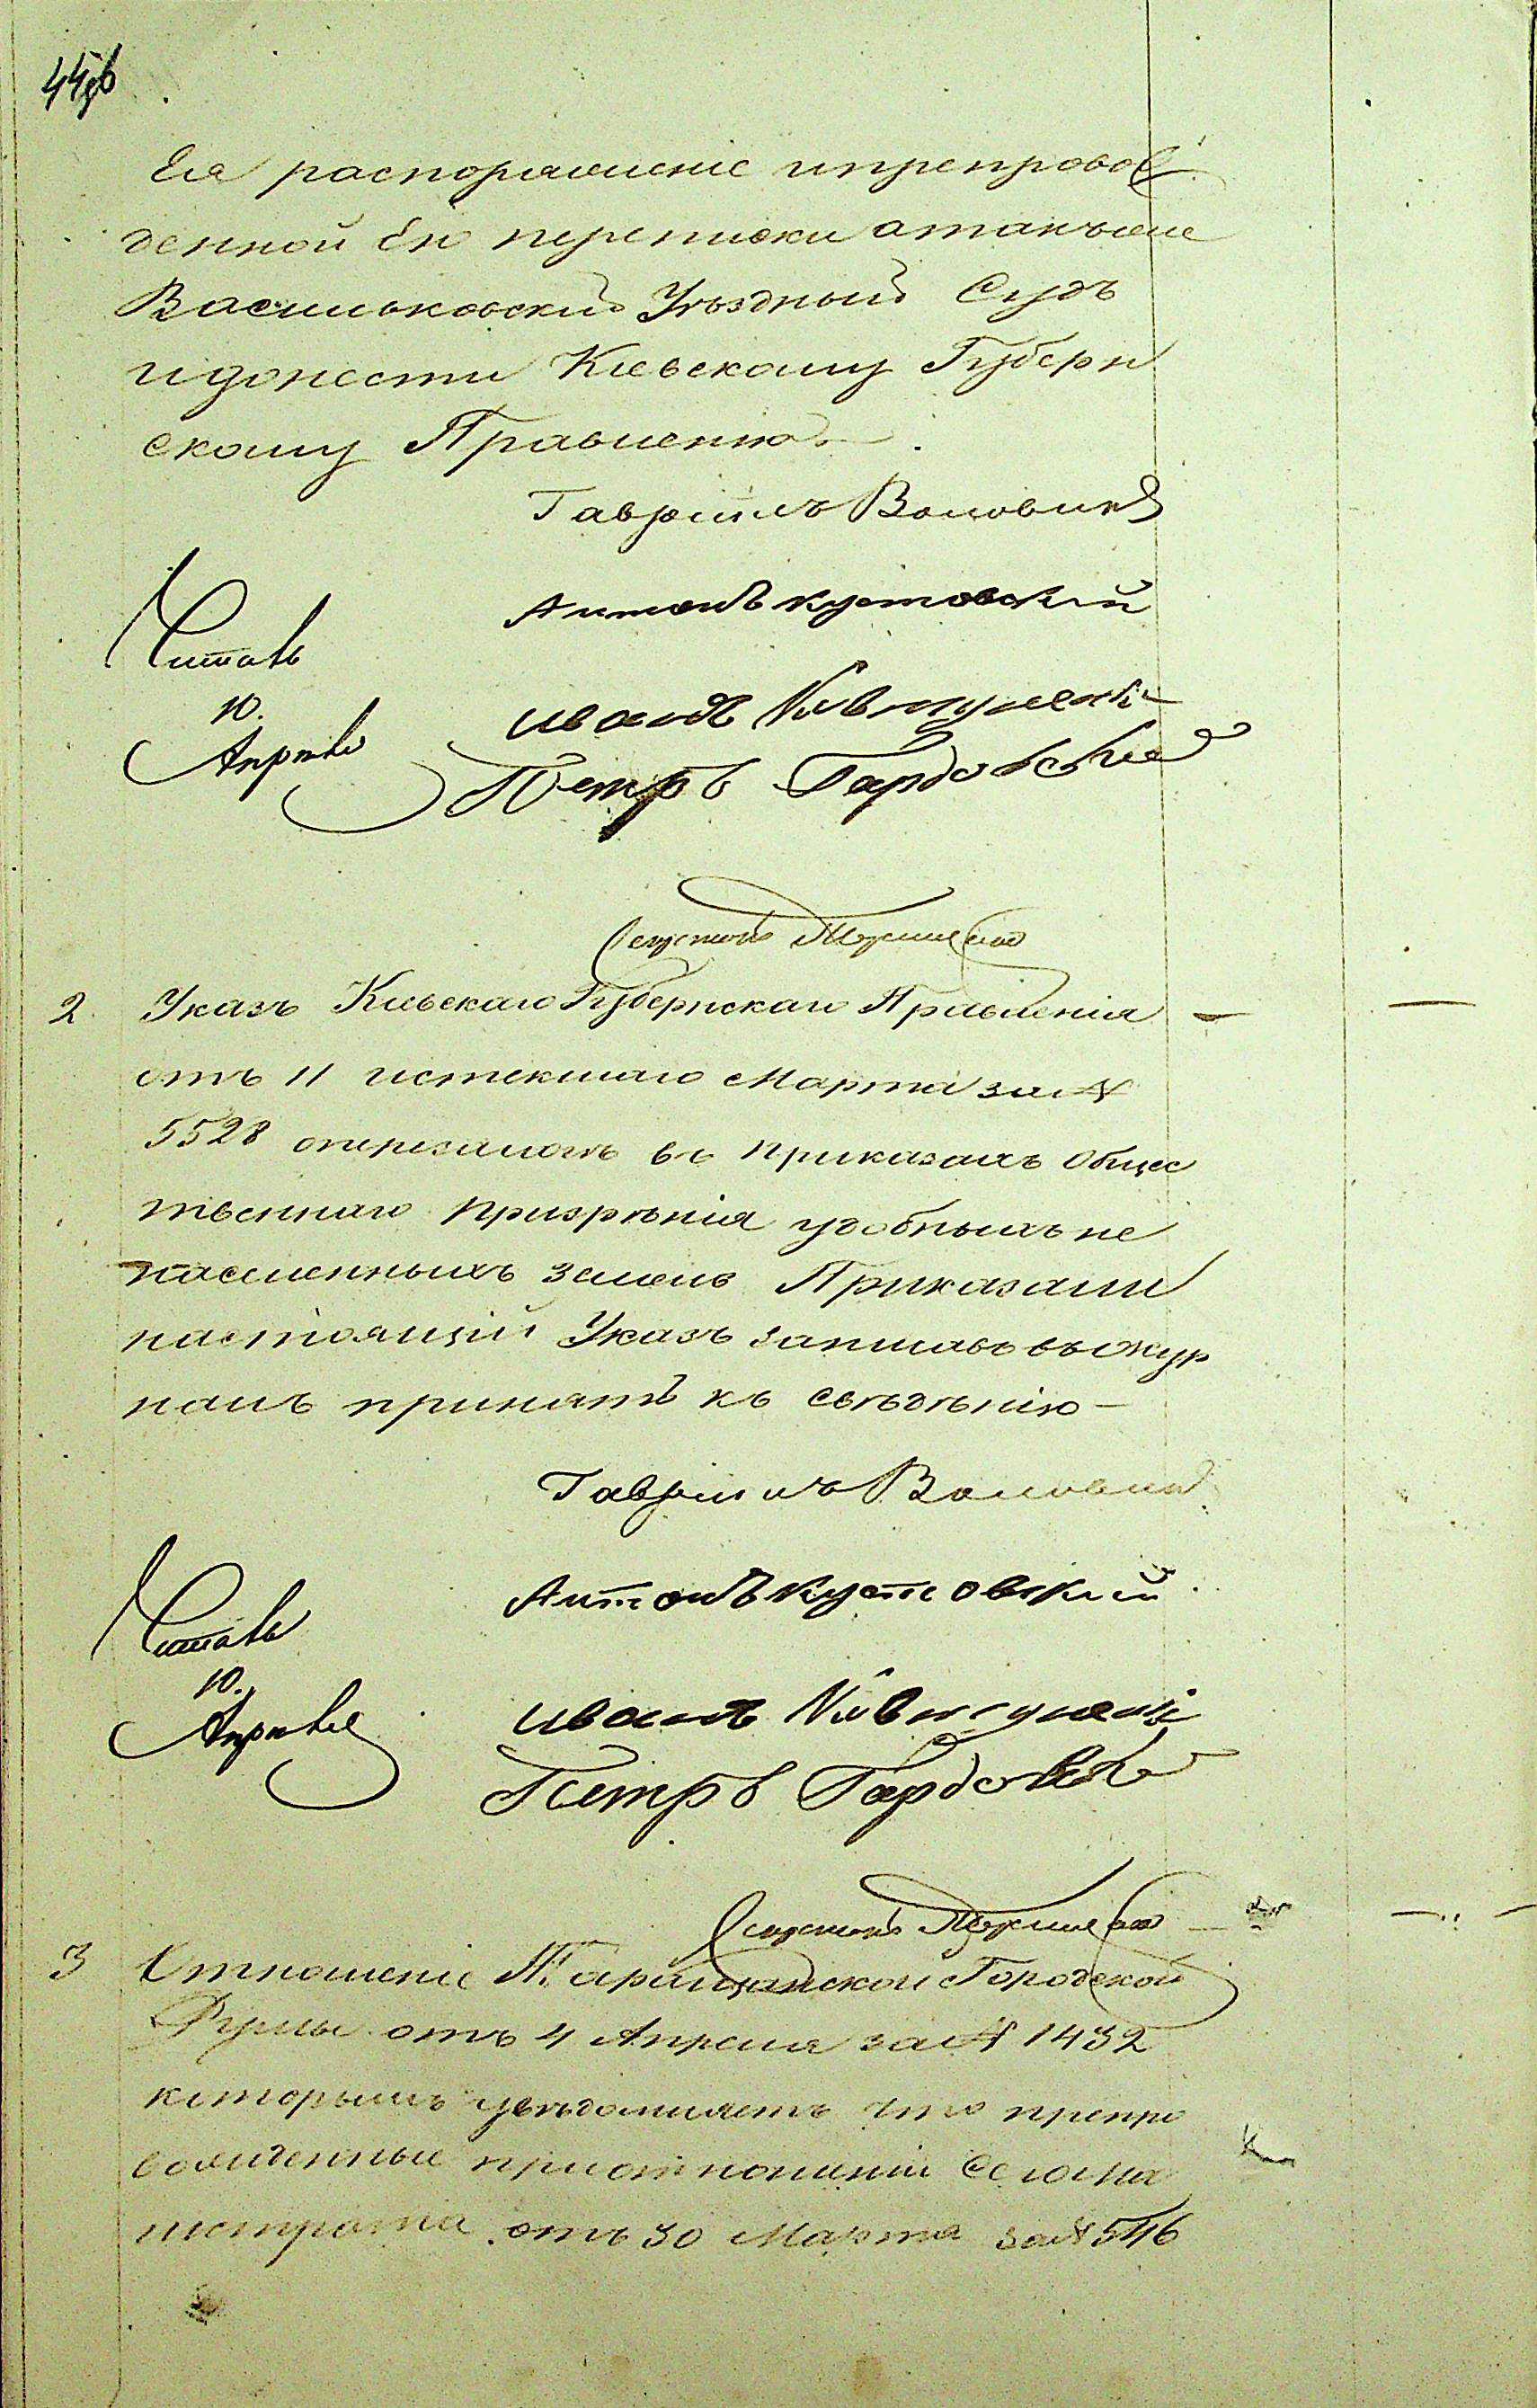 44об
Ея распоряженіе ипрепровож
денной Ею переписки атакъже
Васильковскій Уѣздный Судъ
идонести Кіевскому Губерн
скому Правленію.
Гавріилъ Воловик
Антонъ Кутовский
Читалъ
10.
Апрѣля
иванъ
Петръ
2. Указъ Кіевскаго Губернскаго Правленія
отъ 11 истекшаго Марта за №
5528 въ приказахъ Общес
твеннаго призрѣнія удобныхъ не
населенныхъ земель Приказали
настоящій Указъ записавъ въ жур
налъ принять къ свѣдѣнію
Гавріилъ Воловик
Антонъ Кутовский
Читалъ
10.
Апрѣля
иванъ
Петръ
3 Отношеніе Таращанской Городской
Думы отъ 4 Апреля за № 1432
которымъ увѣдомляетъ что препро
вожденные приотношеніи Сего Ма
гистрата отъ 30 Марта за № 546